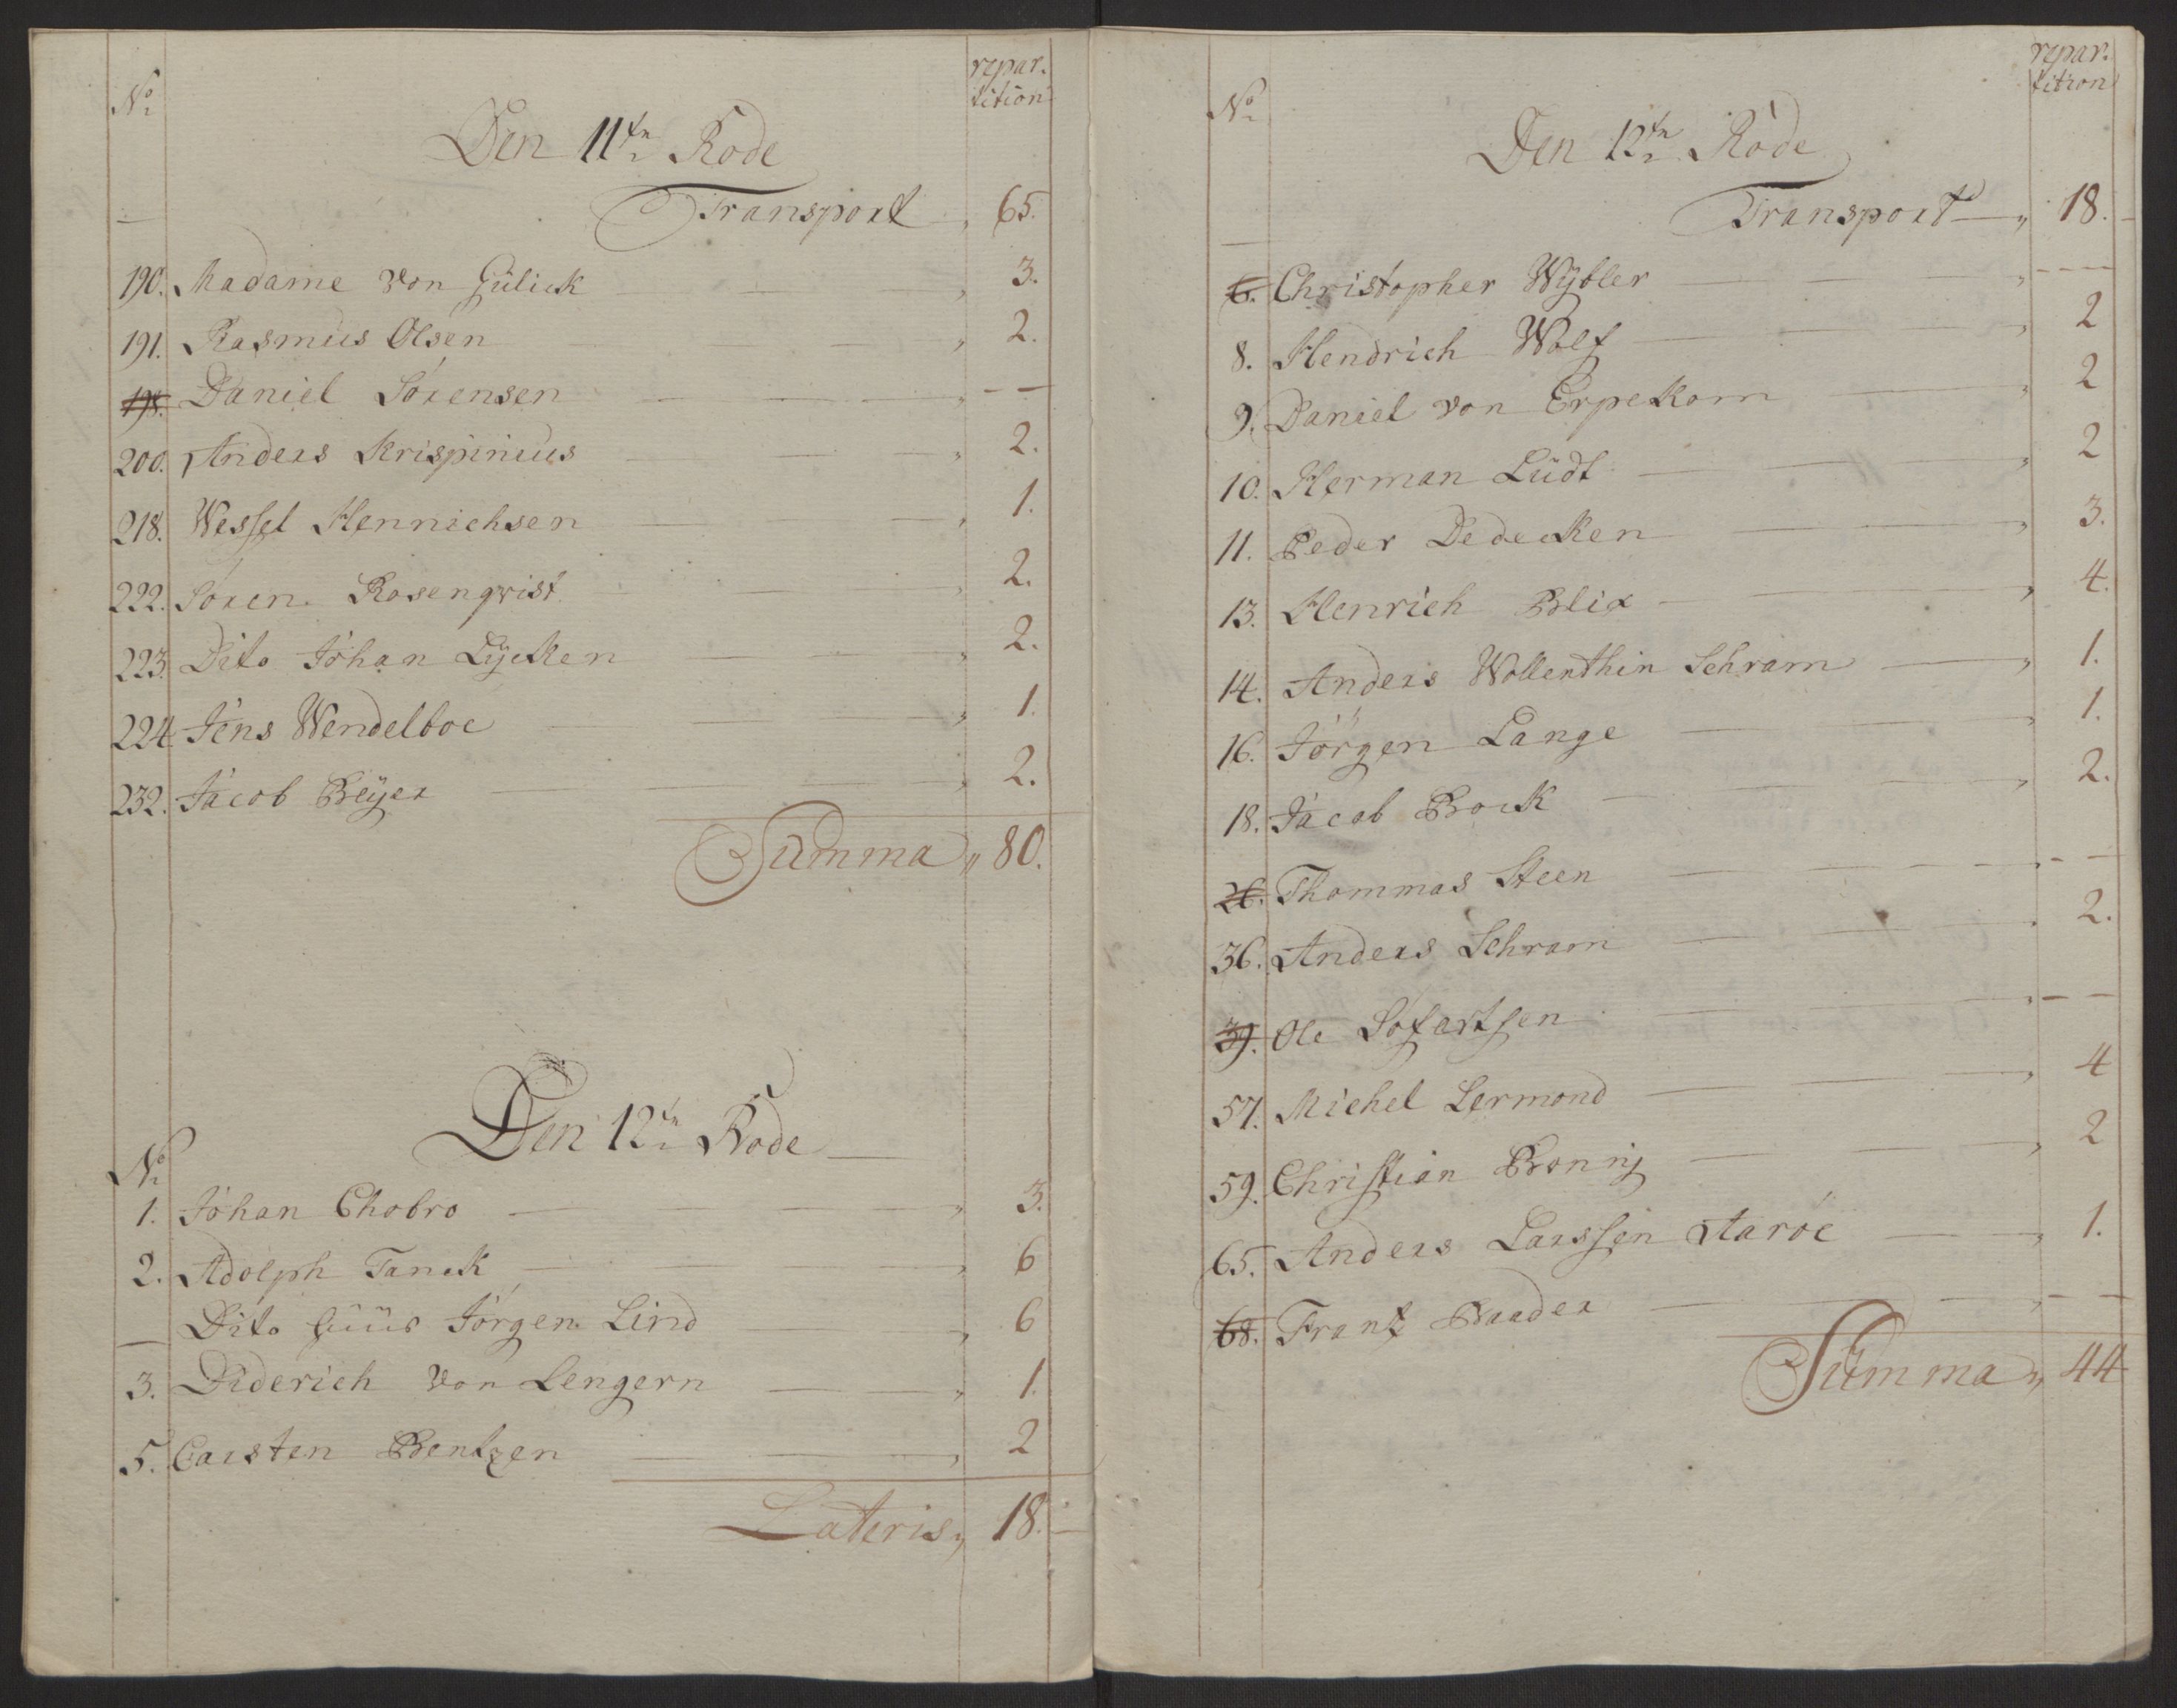 No
repar.
tition
Den 11tn Rode
Transport „ 65.
190. Madame von Gülick „ 3.
191. Rasmus Olsen „ 2.
198. Daniel Sörensen „ — —
200. Anders Krispinius „ 2.
218. Wessel Hennichsen „ 1.
222. Sören Rosenqvist „ 2.
223. Dito Johan Lÿcken „ 2.
224 Jens Wendelboe „ 1.
232. Jacob Beÿer „ 2.
Summa „ 80.
Den 12tn Rode
No
1. Johan Chobro „ 3.
2. Adolph Tanck „ 6
Dito Huus Jörgen Lind „ 6
3. Diderich von Lengern „ 1.
5. Carsten Bentzen „ 2
Lateris „ 18.
No
repar.
tition
Den 12tn Rode
Transport „ 18.
6. Christopher Wÿbler „ — — —
8. Hendrich Wolf „ 2
9. Daniel von Erpekom „ 2
10. Herman Lüdt „ 2
11. Peder Dedecken „ 3.
13. Henrich Blix „ 4.
14. Anders Wollenthin Schram „ 1.
16. Jörgen Lange „ 1.
18. Jacob Bock „ 2.
26. Thommas Steen „ — —
36. Anders Schram „ 2.
39. Ole Sofartsen „ — —
57. Michel Lermond „ 4
59. Christian Bonnig „ 2
65. Anders Larssen Aaröe „ 1.
68. Frantz Baader „ — —
Summa „ 44